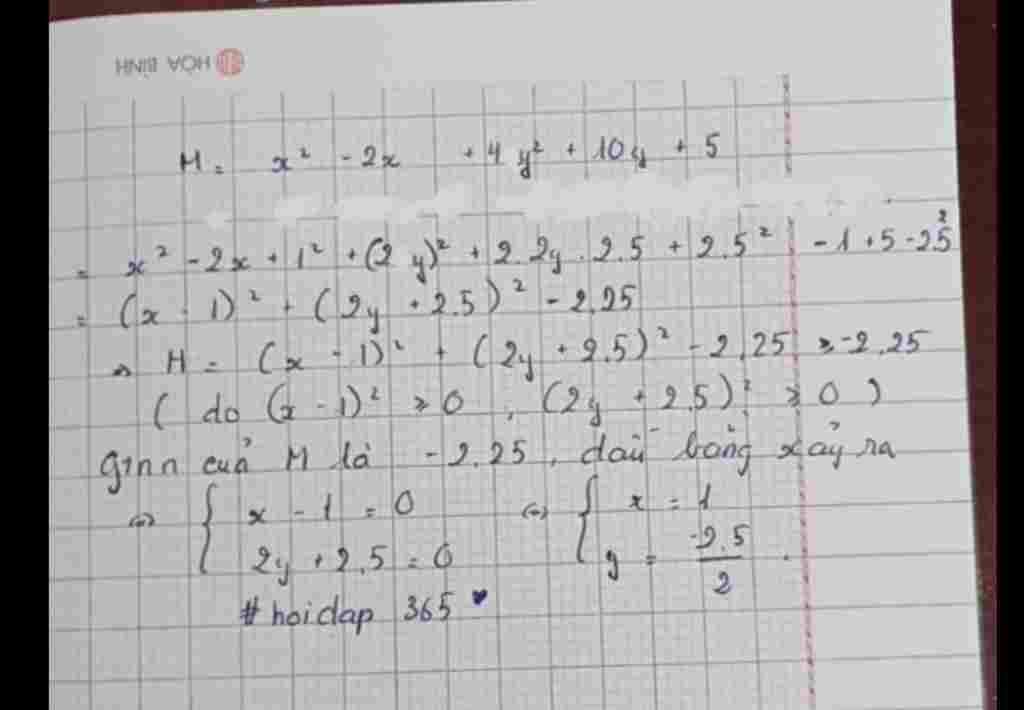 HÒA BÌNH
M = x² - 2x + 4y² + 10y + 5
= x² - 2x + 1² + (2y)² + 2.2y.2.5 + 2.5² - 1 + 5 - 25²
= (x - 1)² + (2y + 2.5)² - 2.25
⇒ M = (x - 1)² + (2y + 2.5)² - 2.25 ≥ -2.25
( do (x - 1)² ≥ 0, (2y + 2.5)² ≥ 0 )
gtnn của M là -2.25, dấu bằng xảy ra
⇔ { x - 1 = 0 ⇔ { x = 1
2y + 2.5 = 0 y = -2.5/2 .
#hoidap 365 ♥